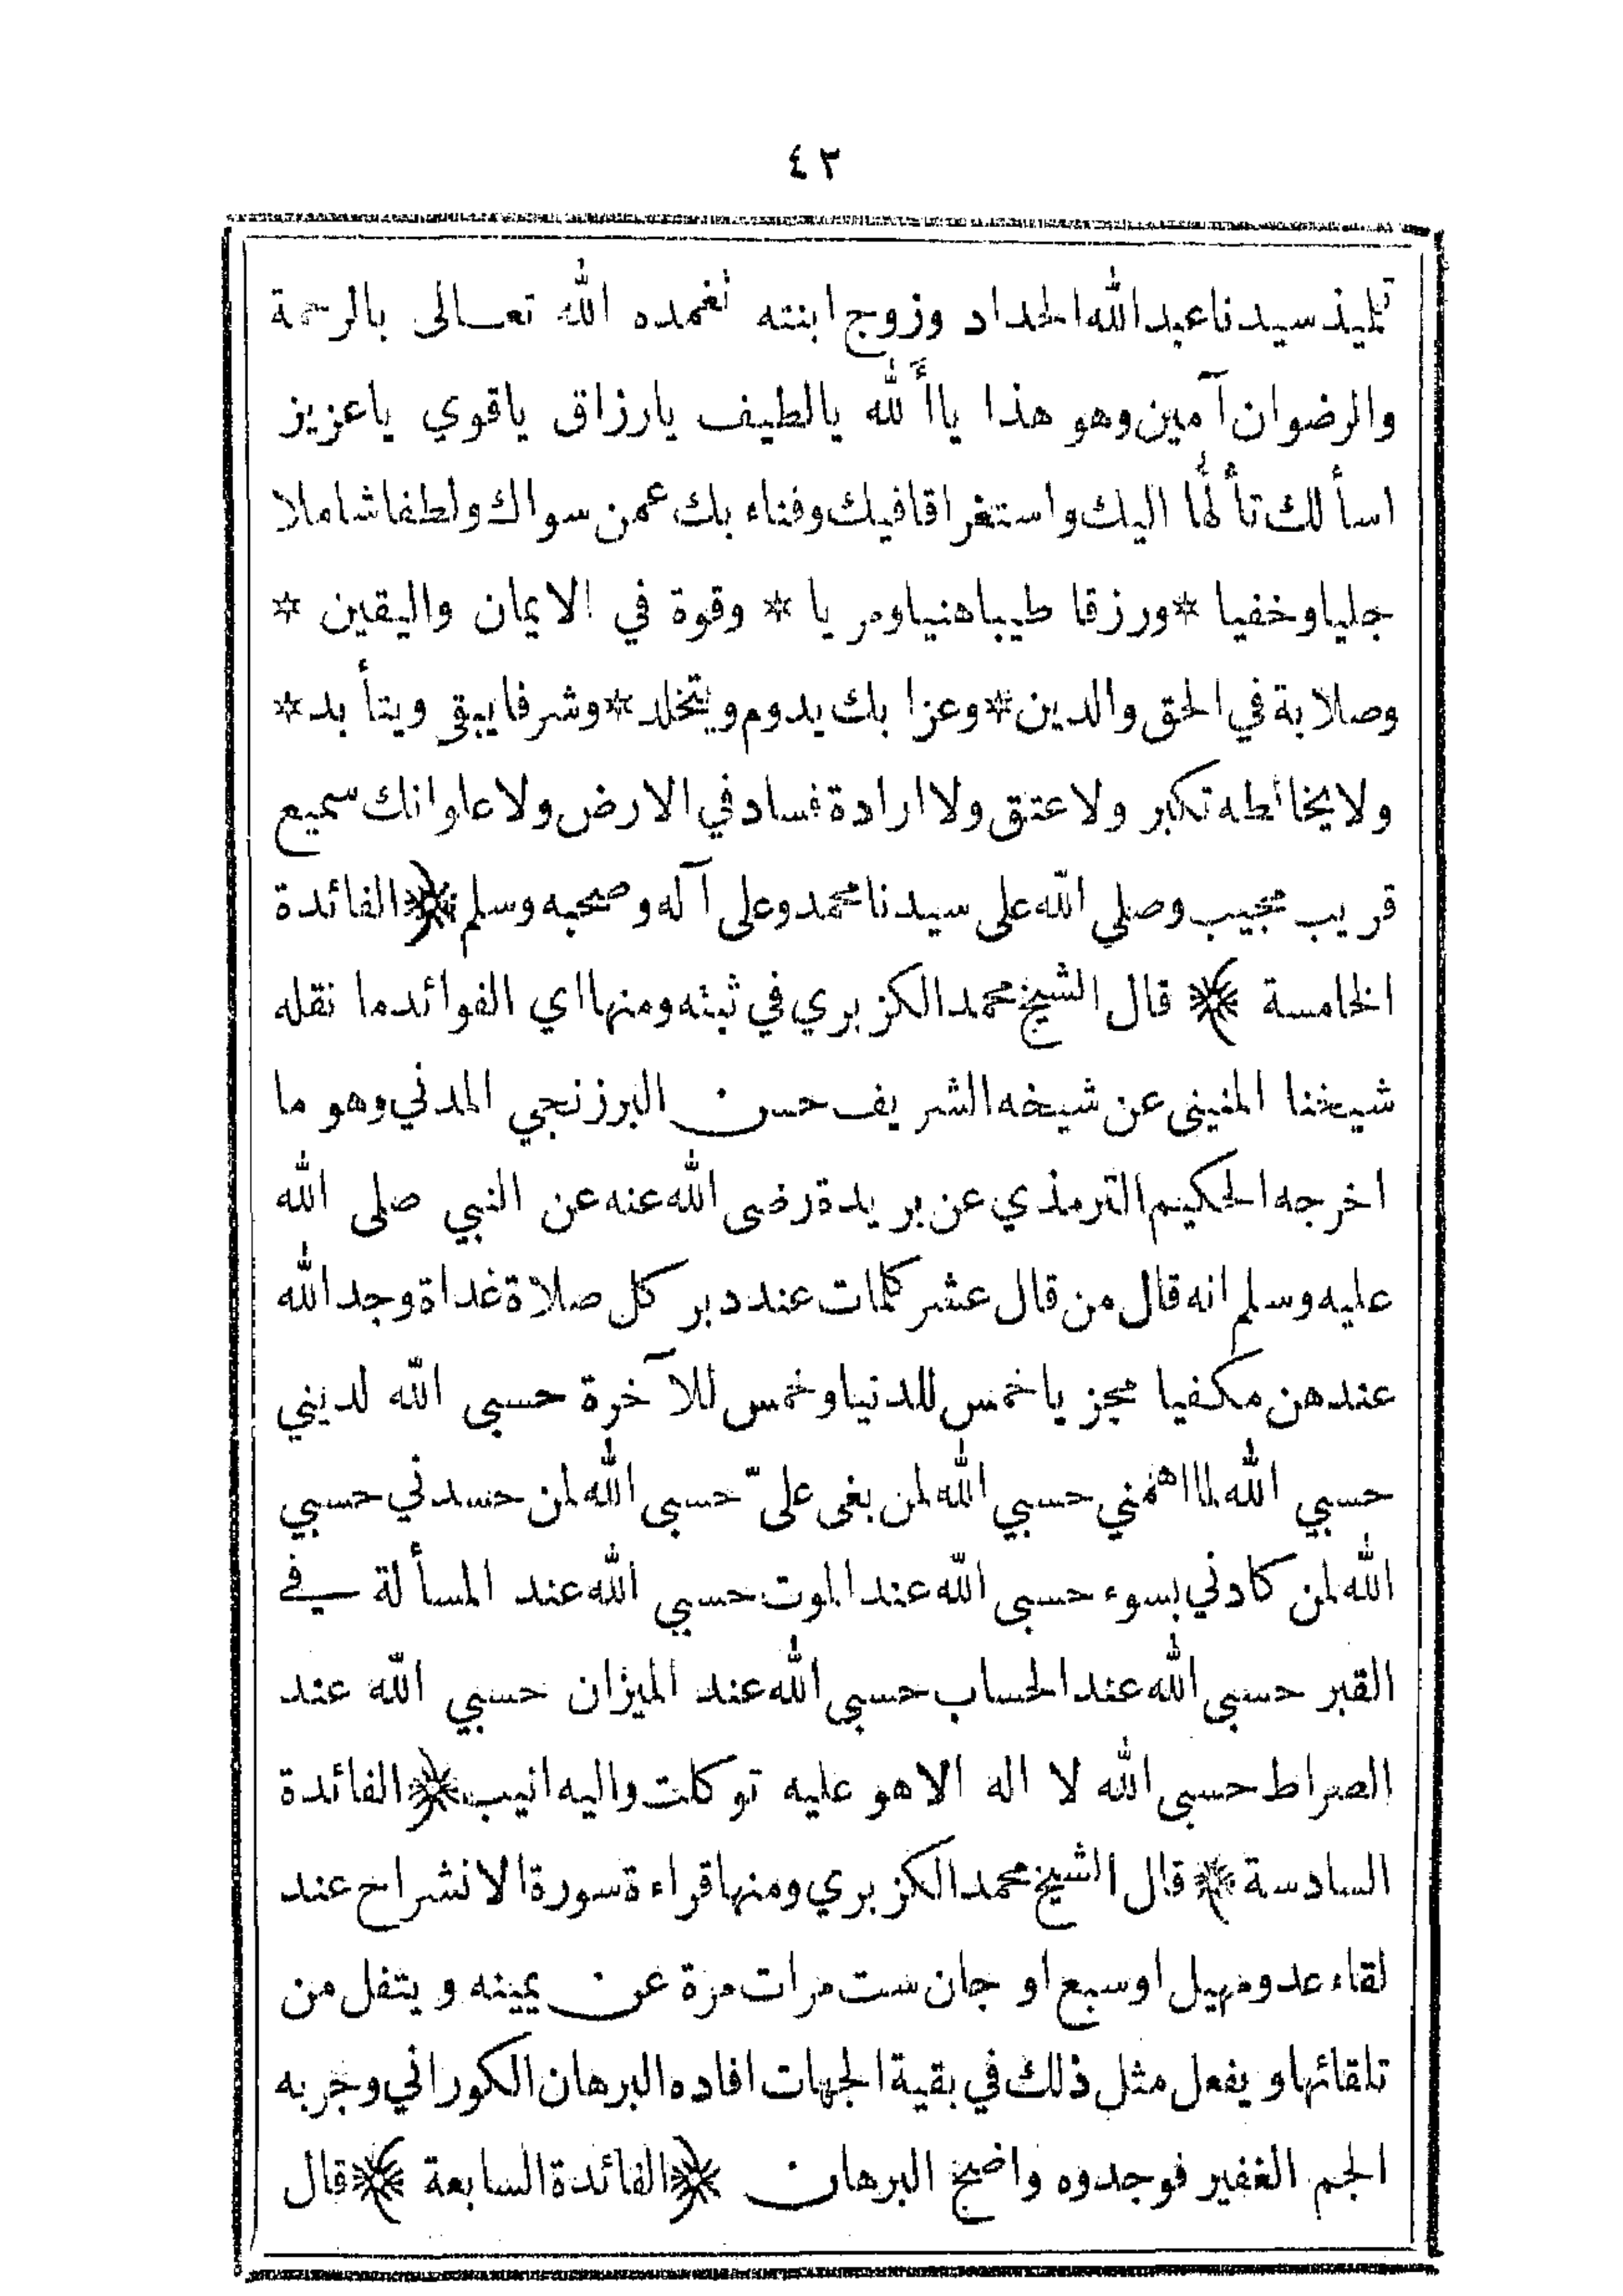 ٤٣
تلميذ سيدنا عبد الله الحداد وزوج ابنته تغمده الله تعالى بالرحمة
والرضوان آمين وهو هذا يا أَلله يالطيف يارزاق ياقوي ياعزيز
اسألك تألُّهًا اليك واستغراقا فيك وفناء بك عمن سواك ولطفا شاملا
جليا وخفيا * ورزقا طيبا هنيا ومريا * وقوة في الايمان واليقين *
وصلابة في الحق والدين * وعزا بك يدوم ويتخلد * وشرفا يبقى ويتأبد *
ولا يخالطه تكبر ولا عتق ولا ارادة فساد في الارض ولا علو انك سميع
قريب مجيب وصلي الله على سيدنا محمد وعلى آله وصحبه وسلم ﴿ الفائدة
الخامسة ﴾ قال الشيخ محمد الكزبري في ثبته ومنها اي الفوائد ما نقله
شيخنا المنيني عن شيخه الشريف حسن البرزنجي المدني وهو ما
اخرجه الحكيم الترمذي عن بريدة رضى الله عنه عن النبي صلى الله
عليه وسلم انه قال من قال عشر كلمات عند دبر كل صلاة غداة وجد الله
عندهن مكفيا مجزيا خمس للدنيا وخمس للآخرة حسبى الله لديني
حسبي الله لما اهمني حسبي الله لمن بغى علىّ حسبى الله لمن حسدني حسبي
الله لمن كادني بسوء حسبى الله عند الموت حسبي الله عند المسألة في
القبر حسبى الله عند الحساب حسبى الله عند الميزان حسبي الله عند
الصراط حسبى الله لا اله الا هو عليه توكلت واليه انيب ﴿ الفائدة
السادسة ﴾ قال الشيخ محمد الكزبري ومنها قراءة سورة الانشراح عند
لقاء عدو مهيل او سبع او جان ست مرات مرة عن يمينه ويتفل من
تلقائها ويفعل مثل ذلك في بقية الجهات افاده البرهان الكوراني وجربه
الجم الغفير فوجدوه واضح البرهان ﴿ الفائدة السابعة ﴾ قال